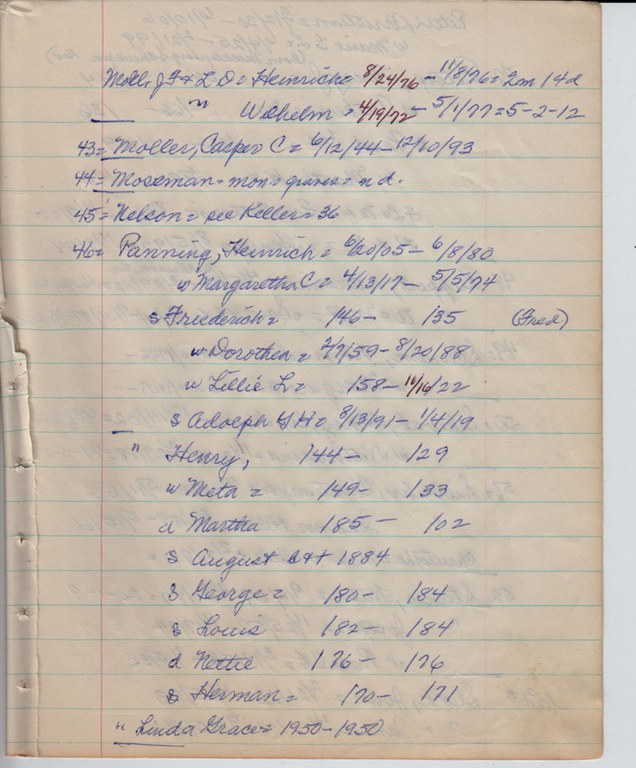 Moller, J F & L D = Heinrich = 8/24/76 - 11/8/76 = 2m 14d
" Wilhelm = 4/19/72 - 5/1/77 = 5-2-12
43 = Moller, Casper C = 6/12/44 - 12/10/93
44 = Moseman = mon = graves = n d.
45 = Nelson = see Keller = 36
46 = Panning, Heinrich = 6/20/05 - 6/8/80
w Margaretha C = 4/13/17 - 5/5/74
s Friederich = /46 - /35 (Fred)
w Dorothea = 2/7/59 - 8/20/88
w Lillie L = /58 - 11/16/22
s Adolph G H = 8/13/91 - 1/4/19
" Henry, /44 - /29
w Meta = /49 - /33
d Martha /85 - /02
s August 1884
s George = /80 - /84
s Louis /82 - /84
d Nettie /76 - /76
s Herman = /70 - /71
" Linda Grace = 1950 - 1950